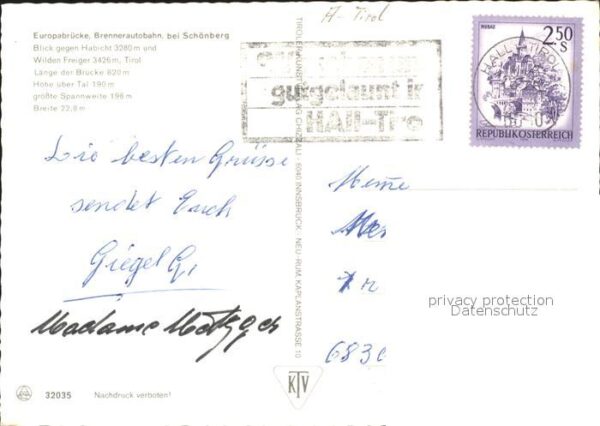 Europabrücke, Brennerautobahn, bei Schönberg
Blick gegen Habicht 3280 m und
Wilden Freiger 3426 m, Tirol
Länge der Brücke 820 m
Höhe über Tal 190 m
größte Spannweite 198 m
Breite 22,8 m
A-Tirol
gutgelaunt in
HALL-Tiro
2.50
S
HALL TIROL
REPUBLIK ÖSTERREICH
TIROLER KUNSTVERLAG CHIZZALI · 6040 INNSBRUCK - NEU-RUM, KAPLANSTRASSE 10
Die besten Grüsse
sendet Euch
Giegel G.
Madame
privacy protection
Datenschutz
6830
KTV
32035 Nachdruck verboten!